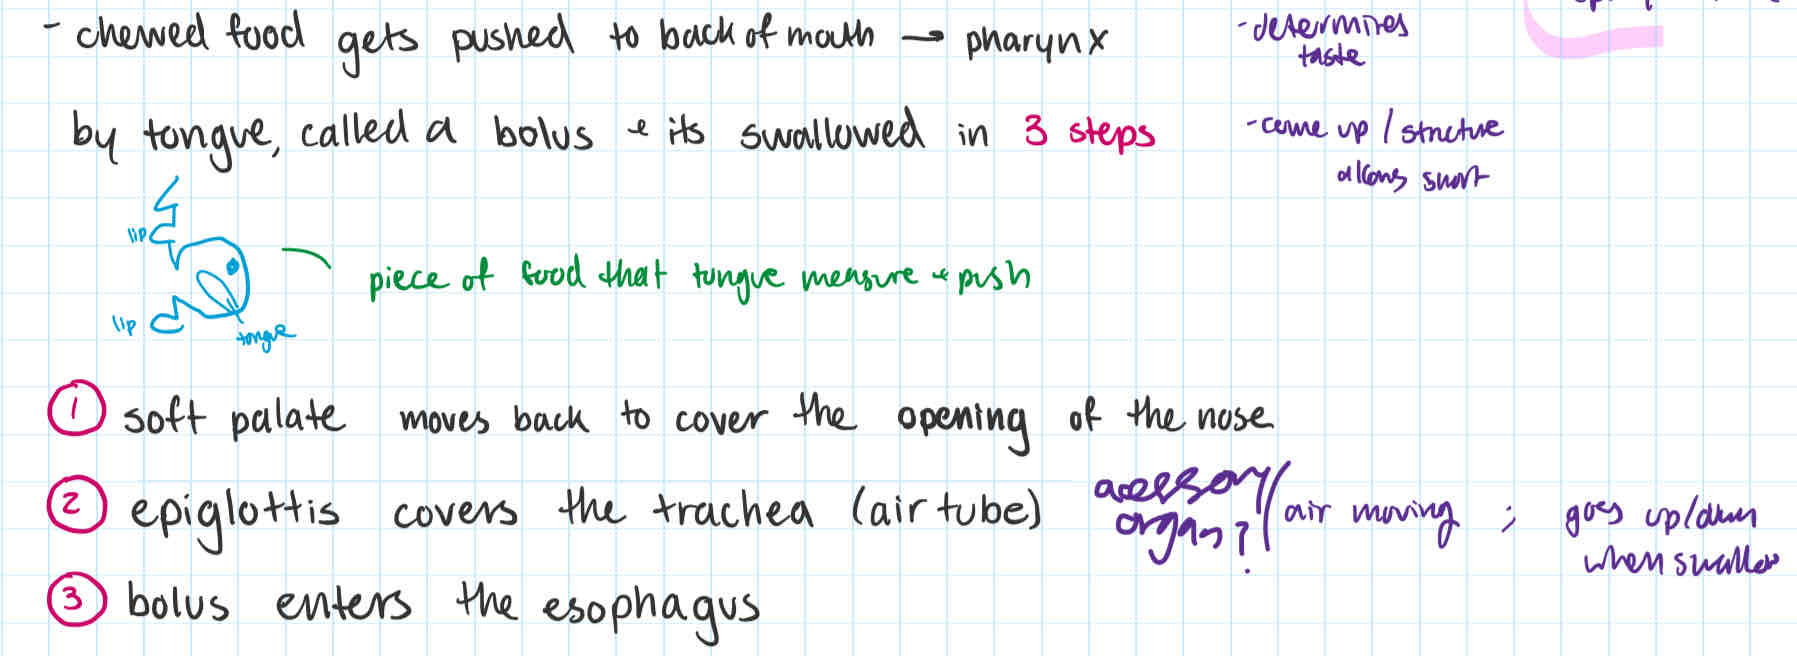 - chewed food gets pushed to back of mouth → pharynx
- determines
taste
by tongue, called a bolus + its swallowed in 3 steps
- come up / structure
allows snort
lip
piece of food that tongue measure + push
lip
tongue
① soft palate moves back to cover the opening of the nose
② epiglottis covers the trachea (air tube)
acessory
organ? / air moving ; goes up/down
when swallow
③ bolus enters the esophagus